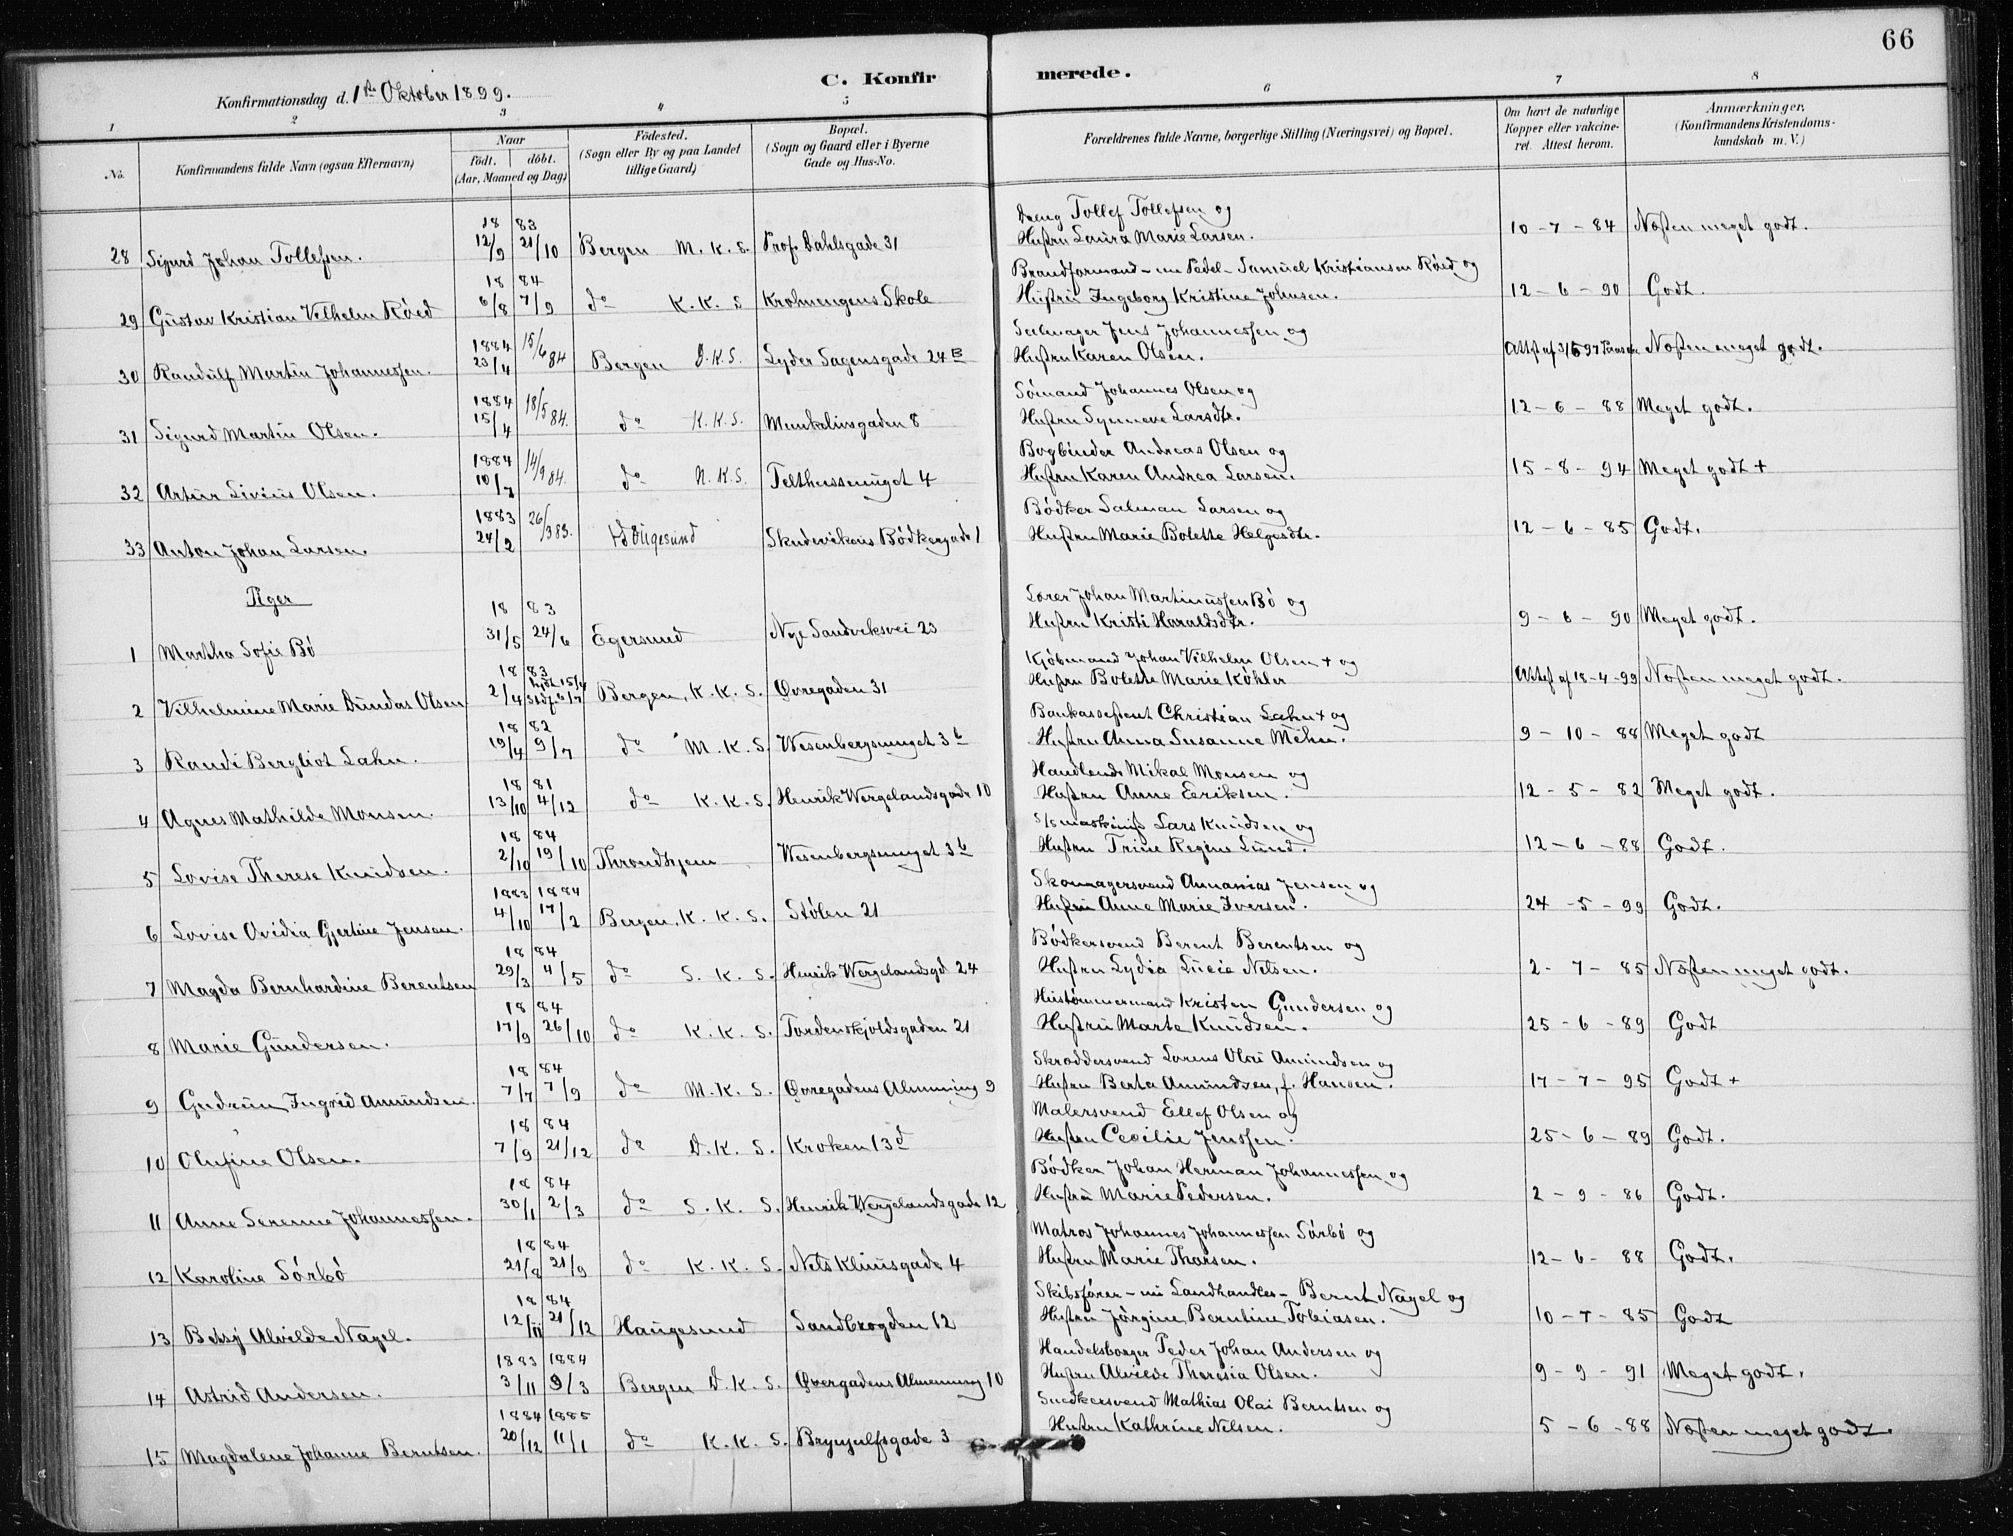 66
C. Konfirmerede.
Konfirmationsdag d. 1ste Oktober 1899.
1 2 3 4 5 6 7 8
No. Konfirmandens fulde Navn (ogsaa Efternavn) Naar födt. döbt. (Aar, Maaned og Dag) Födested. (Sogn eller By og paa Landet tillige Gaard) Bopæl. (Sogn og Gaard eller i Byerne Gade og Hus-No. Forældrenes fulde Navne, borgerlige Stilling (Næringsvei) og Bopæl. Om havt de naturlige Kopper eller vakcineret. Attest herom. Anmærkninger. (Konfirmandens Kristendomskundskab m. V.)
18 83 Dreng Tollef Tollefsen og
28 Sigurd Johan Tollefsen. 12/9 21/10 Bergen M. K. S. Prof. Dahlsgade 31 Hustru Laura Marie Larsen. 10-7-84 Næsten meget godt.
18 84 Brandformand - nu Pedel - Samuel Kristiansen Röed og
29 Gustav Kristian Vilhelm Röed 6/8 7/9 do K. K. S Krohnengens Skole Hustru Ingeborg Kristine Johnsen. 12-6-90 Godt.
1884 15/6 84 Jens Johannessen og
30 Randulf Martin Johannessen. 23/4 Bergen D. K. S. Lyder Sagensgade 24 B Hustru Karen Olsen. Næsten meget godt.
1884 18/5 84. Sömand Johannes Olsen og
31 Sigurd Martin Olsen. 15/4 do K. K. S. Munkelivsgaden 8 Hustru Synneve Larsdtr. 12-6-88 Meget godt.
1884 14/9 84. Bogbinder Andreas Olsen og
32 Artur Livius Olsen. 10/7 do N. K. S. Telthussmuget 4 Hustru Karen Andrea Larsen. 15-8-94 Meget godt +
1883 26/3 83. Bödker Salman Larsen og
33 Anton Johan Larsen. 24/2 Skudevikens Bödkergade 1 Hustru Marie Bolette Helgesdtr. 12-6-85 Godt.
Piger
18 83 Johan Martinussen Bö og
1 Martha Sofie Bö 31/5 24/6 Egersund Nye Sandviksvei 23 Hustru Kristi Haraldsdtr. 9-6-90 Meget godt.
18 83 Kjöbmand Johan Vilhelm Olsen + og
2 Vilhelmine Marie Dundas Olsen 2/4 Bergen, K. K. S. Øvregaden 31 Hustru Bolette Marie Köhler Attest af 18-4-99 Næsten meget godt.
18 82 Bankassistent Christian Lahn + og
3 Randi Bergliot Lahn. 19/4 9/7 do M. K. S. Wesenbergsmuget 3 b Hustru Anna Susanne Mehn. 9-10-88 Meget godt
18 81 Handlende Mikal Monsen og
4 Agnes Mathilde Monsen. 13/10 4/12 do K. K. S. Henrik Wergelandsgade 10 Hustru Anne Eriksen. 12-5-82 Meget godt.
18 84 Lars Knudsen og
5 Lovise Therese Knudsen. 2/10 19/10 Throndhjem Wesenbergsmuget 3 b Hustru Trine Regine Lund. 12-6-88 Godt.
1883 1884 Skomagersvend Annanias Jensen og
6 Lovise Ovidia Gjertine Jensen. 4/10 17/2 Bergen, K. K. S. Stölen 21 Hustru Anne Marie Iversen. 24-5-99 Godt.
18 84 Bödkersvend Berent Berentsen og
7 Magda Bernhardine Berentsen 29/3 4/5 do S. K. S. Henrik Wergelandsgd. 24 Hustru Lydia Lucie Nilsen. 2-7-85 Næsten meget godt.
18 84 Hustömmermand Kristen Gundersen og
8 Marie Gundersen. 17/9 26/10 do K. K. S. Tordenskjoldsgaden 21 Hustru Marta Knudsen. 25-6-89 Godt
18 84 Skreddersvend Lorens Olai Amundsen og
9 Gudrun Ingrid Amundsen. 7/7 7/9 do M. K. S. Øvregadens Almening 9 Hustru Berta Amundsen, f. Hansen. 17-7-95 Godt +
18 84 Malersvend Ellef Olsen og
10 Olufine Olsen. 7/9 21/12 do D. K. S. Kroken 13 d Hustru Cecilie Jenssen. 25-6-89 Godt.
18 84 Bödker Johan Herman Johannessen og
11 Anne Serenne Johannessen. 30/1 2/3 do S. K. S. Henrik Wergelandsgade 12 Hustru Marie Pedersen. 2-9-86 Godt.
18 84 Matros Johannes Johannessen Sörbö og
12 Karoline Sörbö 21/8 21/9 do K. K. S. Nels Klimsgade 4 Hustru Marie Thorsen. 12-6-88 Godt.
18 84 Skibsförer - nu Landhandler - Bernt Nagel og
13 Betsy Alvilde Nagel. 12/11 21/12 Haugesund Sandbrogden 12 Hustru Jörgine Berntine Tobiasen. 10-7-85 Godt
1883 1884 Handelsborger Peder Johan Andersen og
14 Astrid Andersen. 3/11 9/3 Bergen D. K. S. Øvregadens Almenning 10 Hustru Alvilde Theresia Olsen. 9-9-91 Meget godt.
1884 1885 Snedkersvend Mathias Olai Berntsen og
15 Magdalene Johanne Berntsen. 20/12 11/1 do K. K. S. Brynjulfsgade 3 Hustru Kathrine Nilsen. 5-6-88 Næsten meget godt.